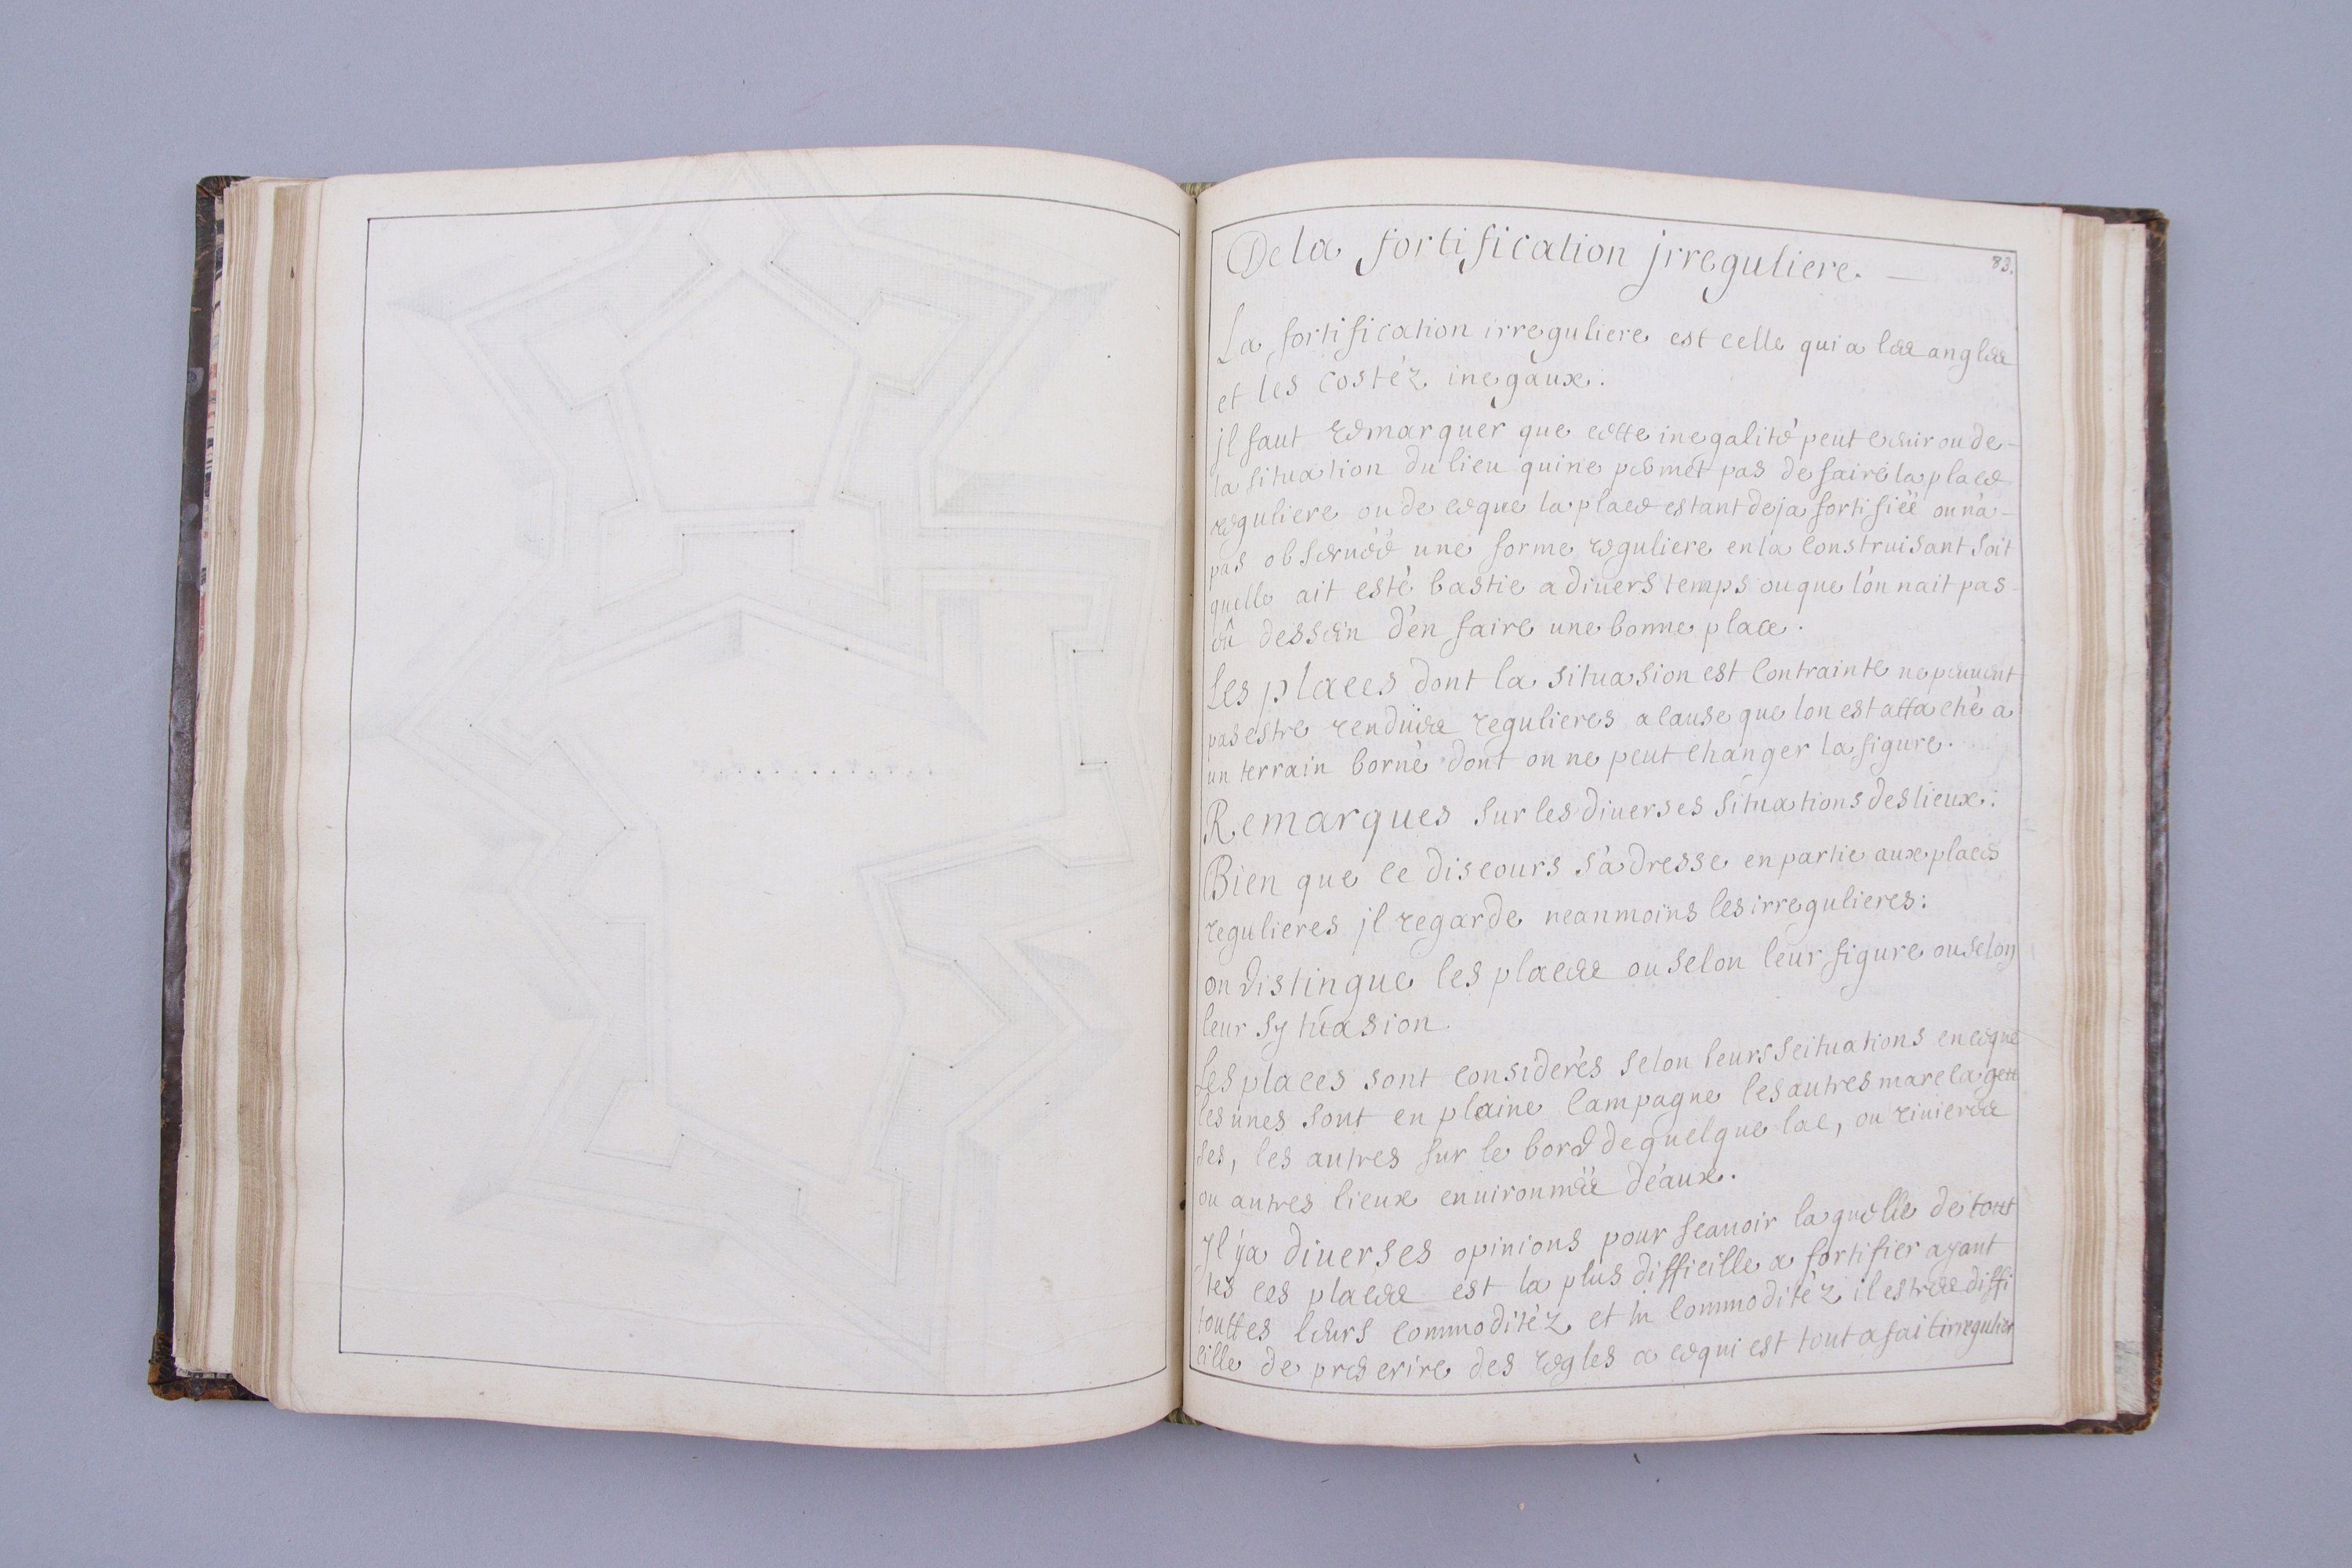 De la fortification jrreguliere. —
83.
La fortification irreguliere est celle qui a les angles
et les costéz inegaux.
jl faut remarquer que cette inegalité peut venir ou de
la situation du lieu qui ne permet pas de faire la place
reguliere ou de ce que la place estant deja fortifiéé on n'a
pas observéé une forme reguliere en la construisant soit
quelle ait esté bastie a divers temps ou que l'on nait pas
eû dessein d'en faire une bonne place.
Les places dont la situasion est contrainte ne peuuent
pas estre renduës regulieres a cause que lon est attaché a
un terrain borné dont on ne peut changer la figure.
Remarques sur les diuerses situations des lieux:
Bien que ce discours s'adresse en partie aux places
regulieres jl regarde neanmoins les irregulieres:
on distingue les places ou selon leur figure ou selon
leur sytuasion.
Les places sont considerés selon leurs scituations en ce que
les unes sont en plaine campagne les autres marecageu
ses, les autres sur le bord de quelque lac, ou riuieres
ou autres lieux enuironnéés d'eaux.
Jl y a diuerses opinions pour scauoir laquelle de tout
tes ces places est la plus difficille a fortifier ayant
touttes leurs commoditéz et in commoditéz il est tres diffi
cille de prescrire des regles a ce qui est tout a fait irregulier